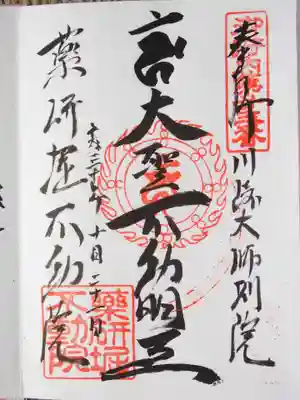 奉拝 川崎大師別院
大聖不動明王
平成二十 年 十月二十一日
薬研堀不動院
薬研堀
不動院